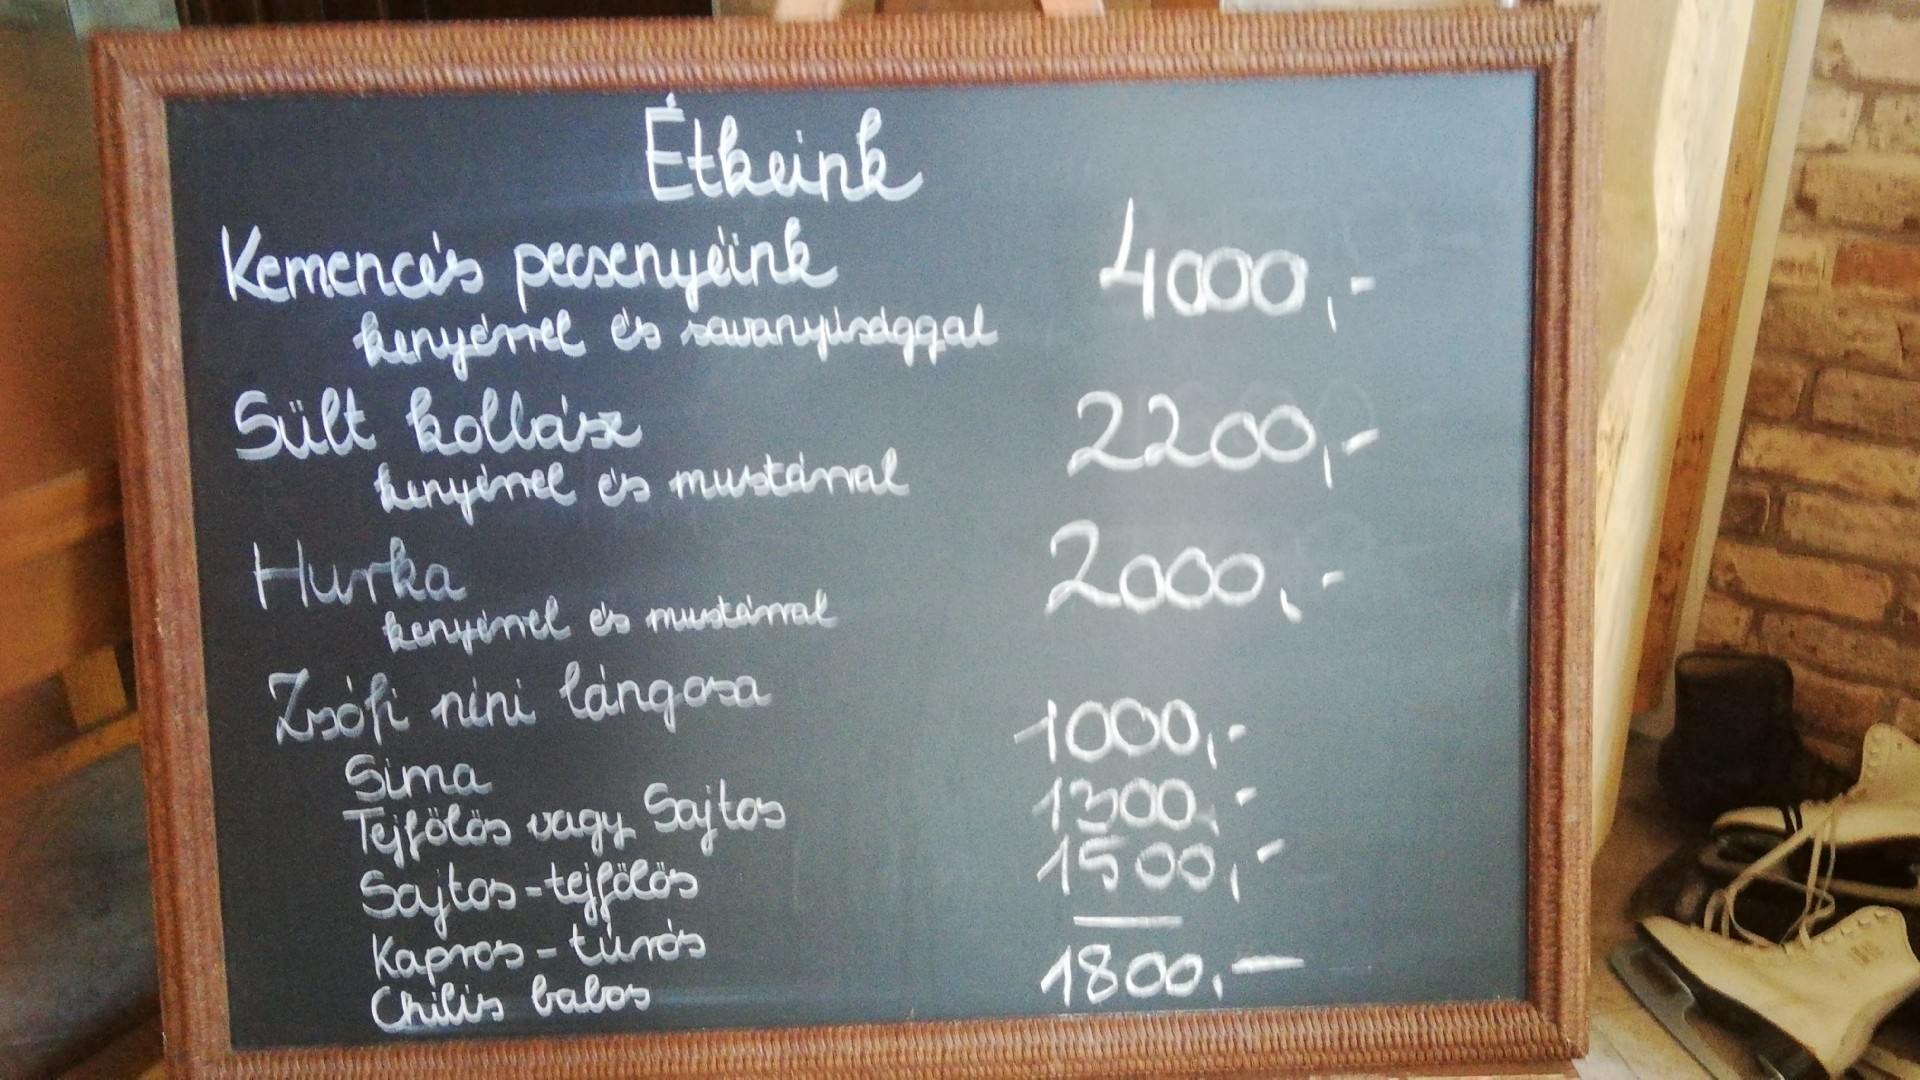 Étkeink
Kemencés pecsenyéink 4000,-
kenyérrel és savanyúsággal
Sült kolbász 2200,-
kenyérrel és mustárral
Hurka 2000,-
kenyérrel és mustárral
Zsófi néni lángosa
Sima 1000,-
Tejfölös vagy Sajtos 1300,-
Sajtos-tejfölös 1500,-
Kapros-túrós —
Chilis babos 1800,-